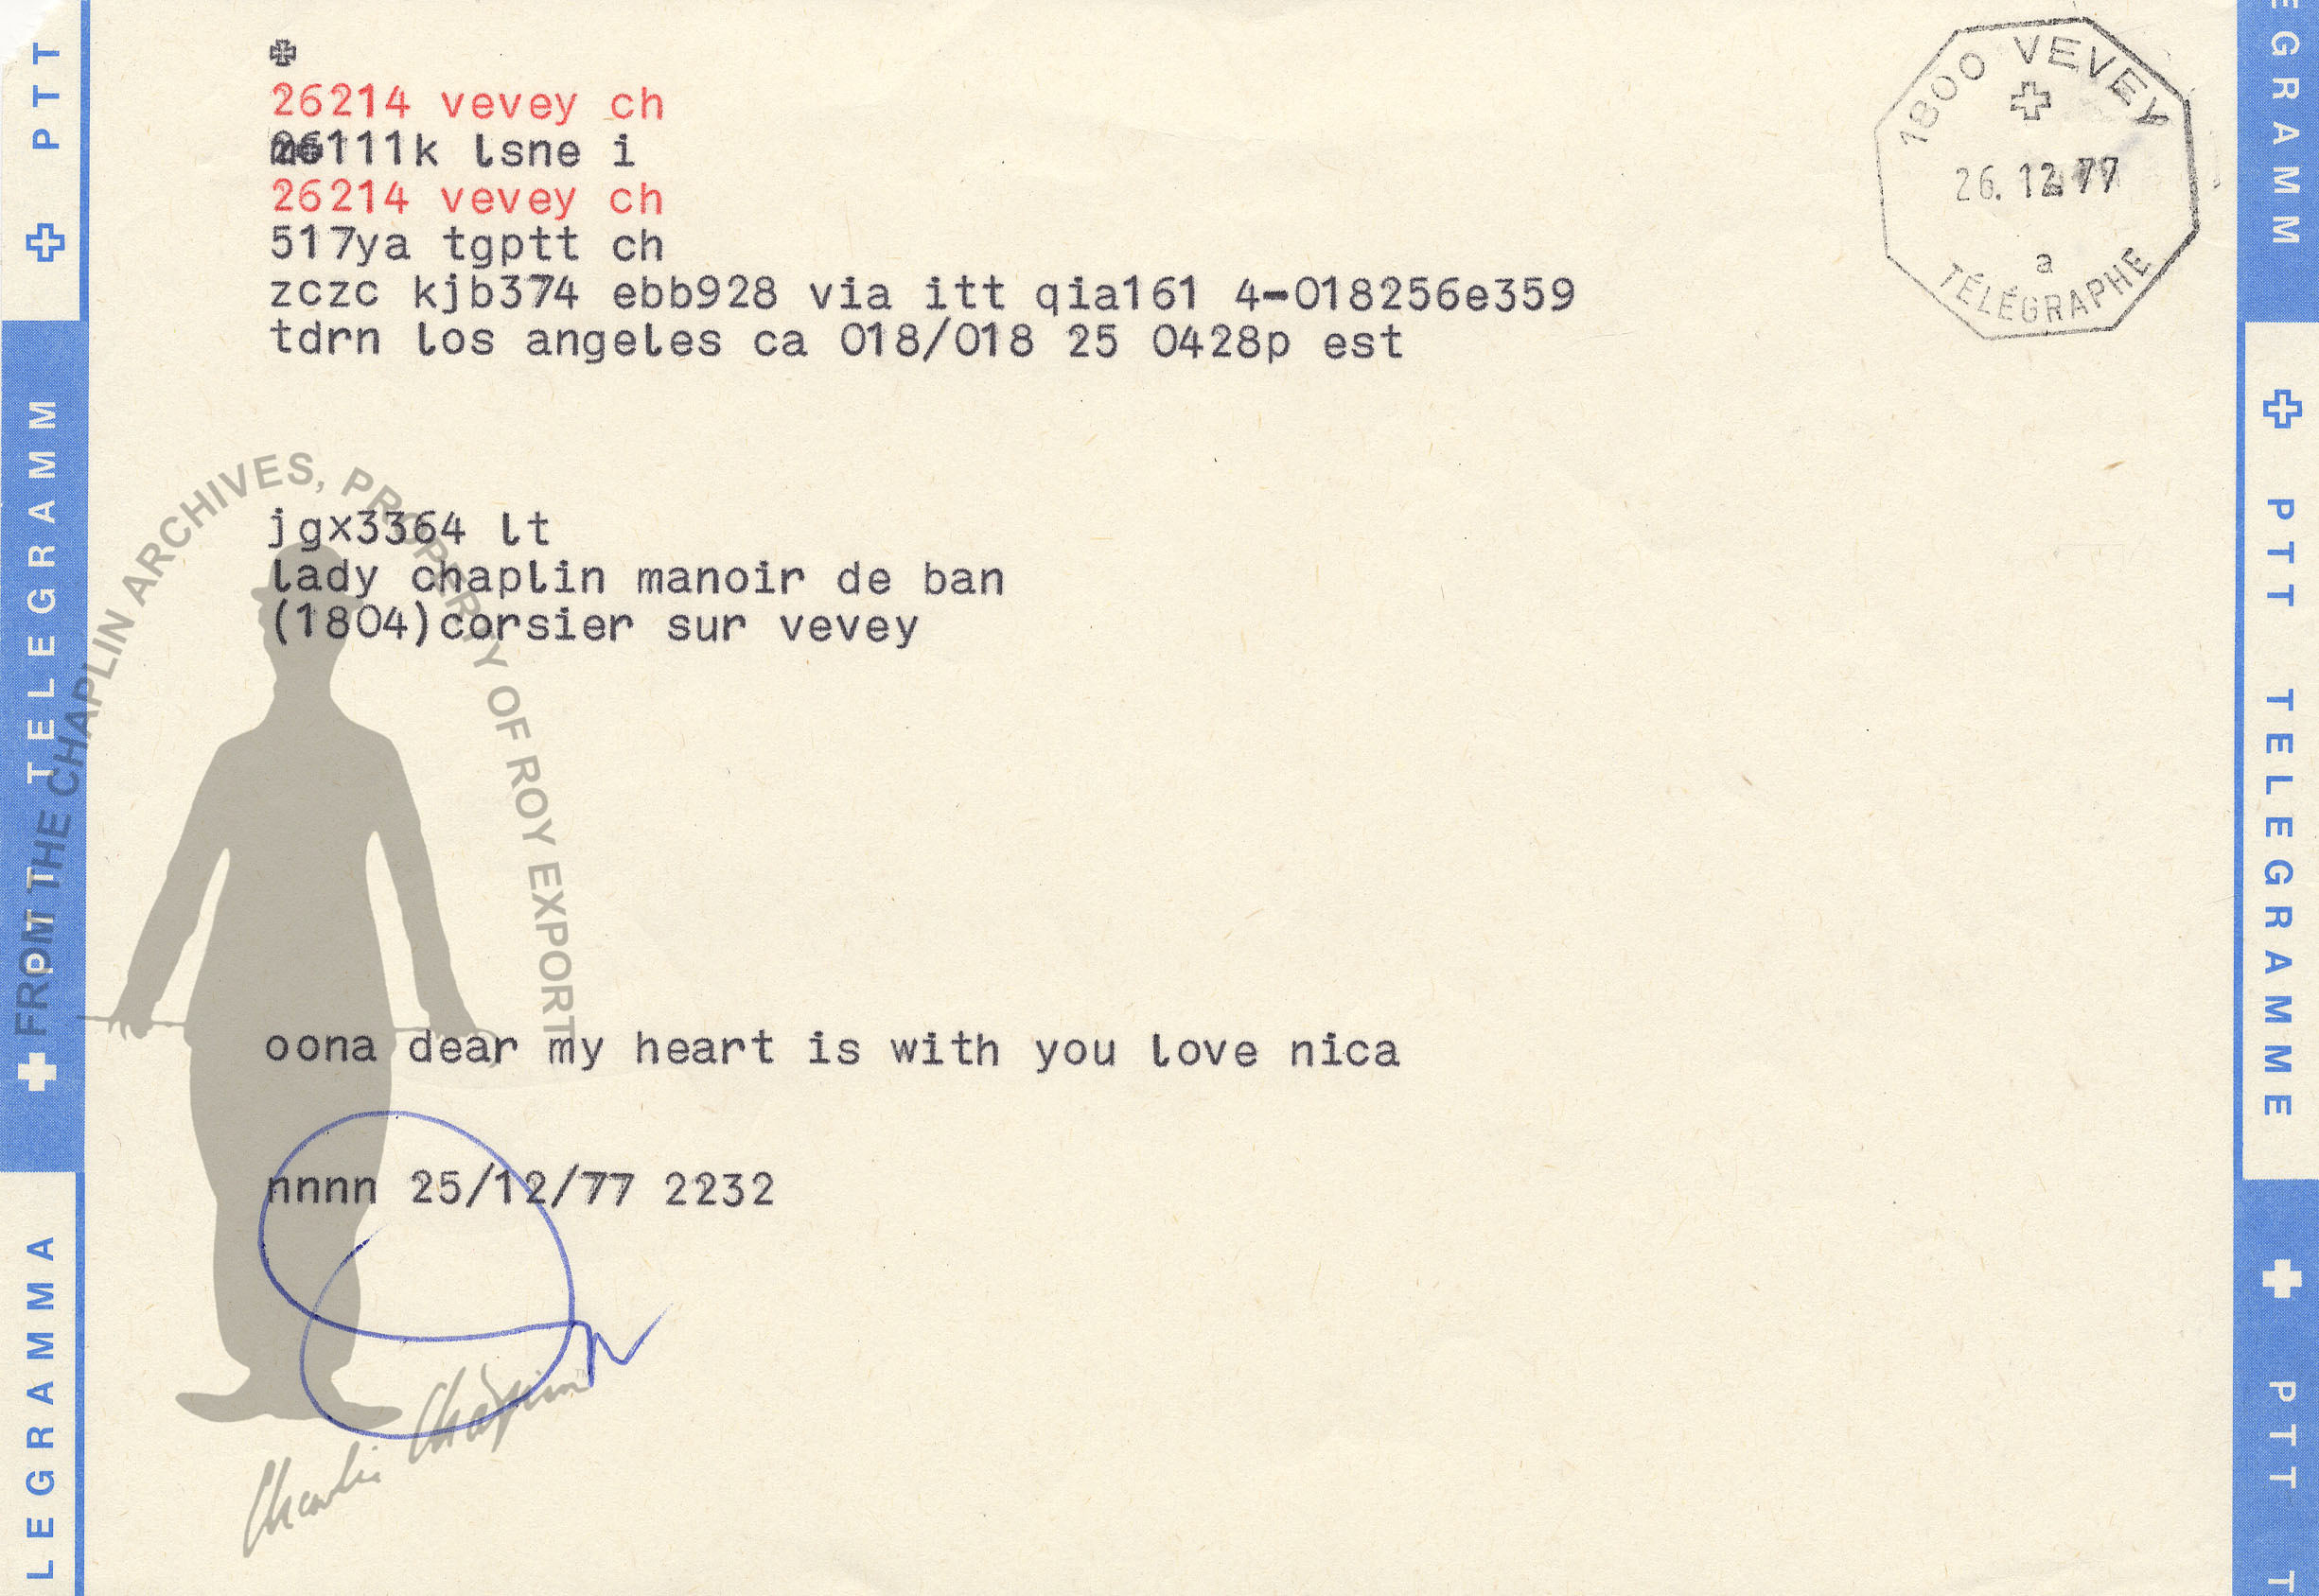 26214 vevey ch
111k lsne i
26214 vevey ch
517ya tgptt ch
zczc kjb374 ebb928 via itt qia161 4-018256e359
tdrn los angeles ca 018/018 25 0428p est
1800 VEVEY
26.12.77
a
TÉLÉGRAPHE
jgx3364 lt
lady chaplin manoir de ban
(1804)corsier sur vevey
oona dear my heart is with you love nica
nnnn 25/12/77 2232
FROM THE CHAPLIN ARCHIVES, PROPERTY OF ROY EXPORT
Charlie Chaplin
PTT
PTT TELEGRAMM
LEGRAMMA
EGRAMM
PTT TELEGRAMME
PTT T